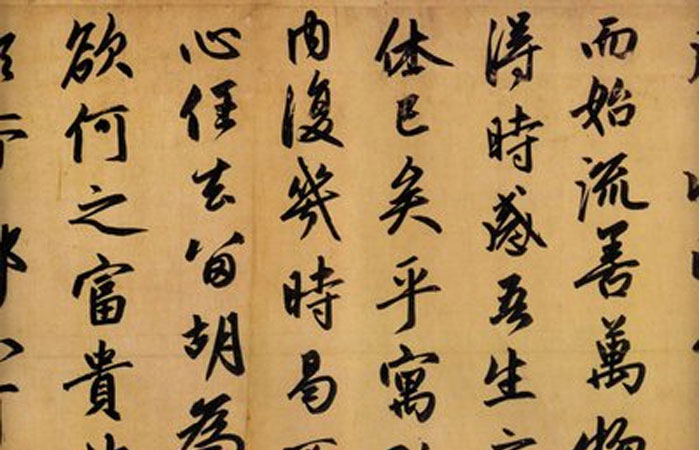 而始流善萬物
得時感吾生
休已矣乎寓
內復幾時曷
心任去留胡為
欲何之富貴